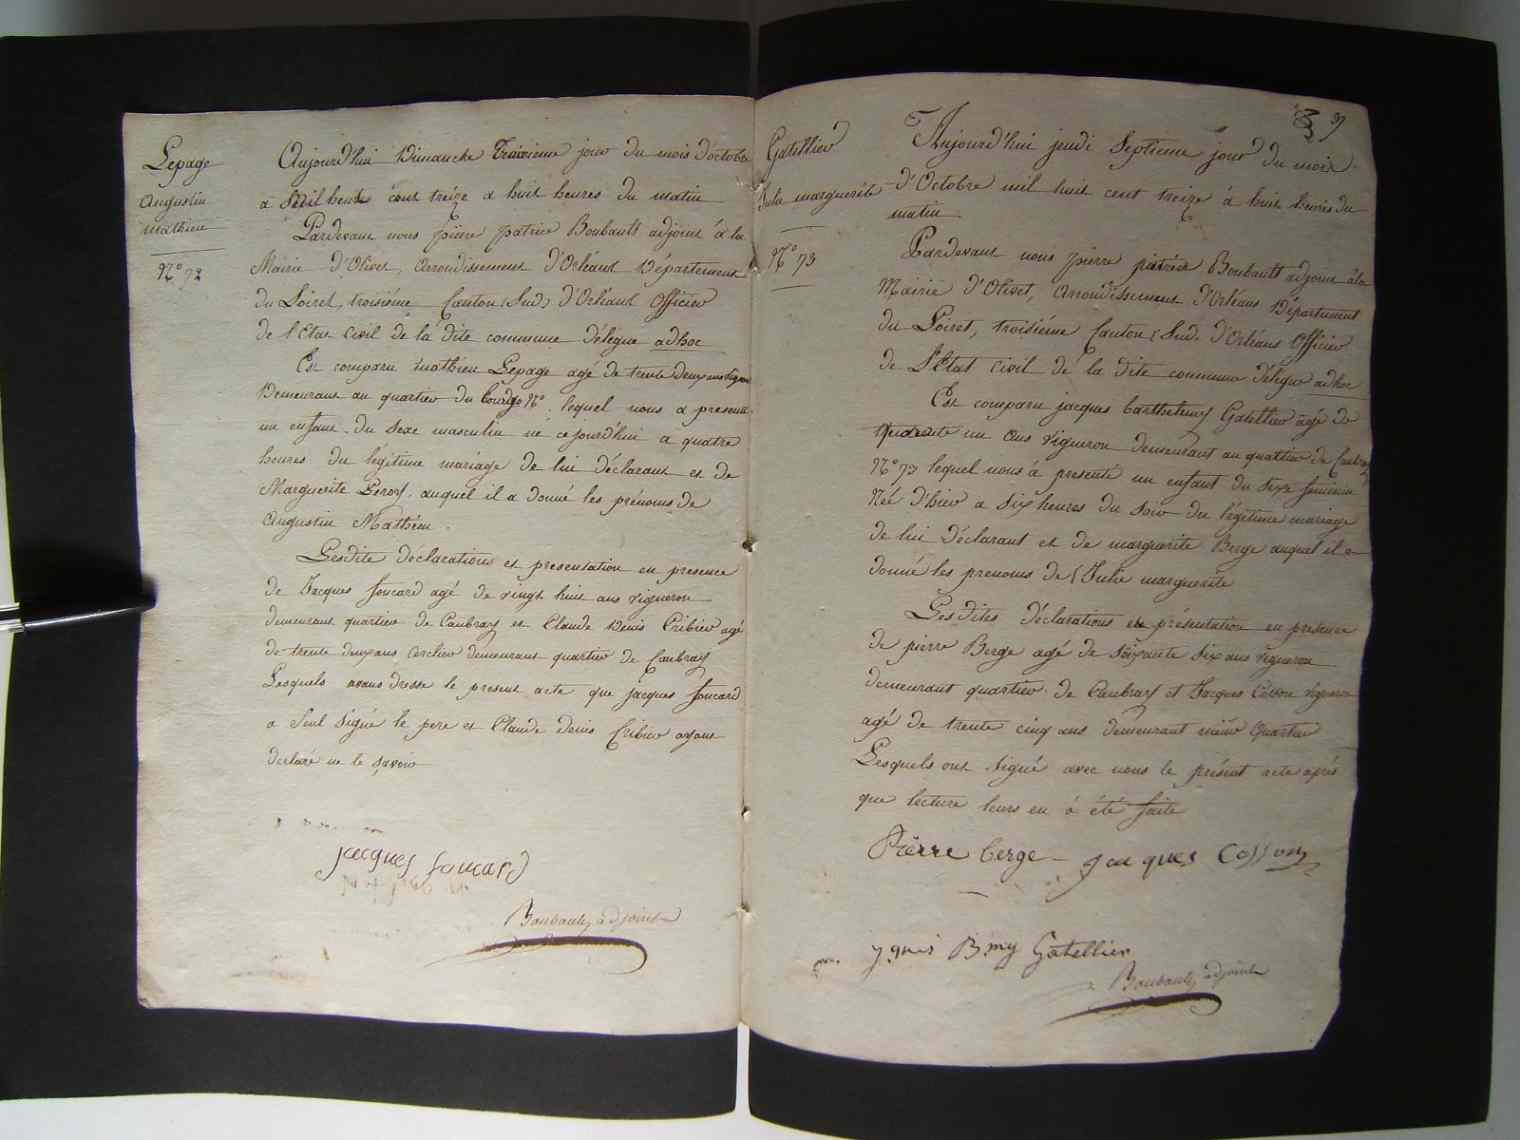 Lepage
Augustin
mathieu
N° 72
Aujourd'hui Dimanche Troisieme jour du mois d'octobre
a huit heures du matin
Pardevant nous pierre patrice Boubault adjoint à la
Mairie d'Olivet, arrondissement d'Orléans Département
du Loiret, troisiéme Canton (Sud) d'Orléans Officier
de l'Etat Civil de la dite commune délégue adhoc
Est comparu mathieu Lepage agé de trente deux ans vigneron
Demeurant au quartier du bourg N° lequel nous a presenté
un enfant du Sexe masculin né cejourd'hui a quatre
heures du légitime mariage de lui déclarant et de
Marguerite Leroy auquel il a donné les prénoms de
Augustin Mathieu.
Lesdite déclarations et presentation en presence
de Jacques foucard agé de vingt huit ans vigneron
demeurant quartier de Caubray et Claude Denis Cribier agé
de trente deux ans cerclier demeurant quartier de Caubray
Lesquels avons dresse le present acte que jacques foucard
a Seul Signé le pere et Claude denis Cribier ayant
declaré ne le Savoir
jacques foucard
Boubault adjoint
37
Gatellier
Julie marguerite
N° 73
Aujourd'hui jeudi Septieme jour du mois
d'Octobre mil huit cent treize à huit heures du
matin
Pardevant nous pierre patrice Boubault adjoint à la
Mairie d'Olivet, Arrondissement d'Orléans Département
du Loiret, troisiéme Canton (Sud) d'Orléans Officier
de L'Etat Civil de la dite commune délégué adhoc
Est comparu jacques barthelemy Gatellier agé de
quarante un ans vigneron demeurant au quartier de Caubray
N° 73 lequel nous à presenté un enfant du Sexe feminin
Née d'hier a Six heures du Soir du légitime mariage
de lui Déclarant et de marguerite Berge auquel il a
donné les prenoms de Julie marguerite
Lesdites déclarations et présentation en presence
de pierre Berge agé de Soixante Six ans vigneron
demeurant quartier de Caubray et Jacques Cosson vigneron
agé de trente cinq ans demeurant même Quartier
Lesquels ont Signé avec nous le présent acte après
que lecture leurs en à été faite
Pierre berge - Jacques Cosson
Bmy Gatellier
Boubault adjoint